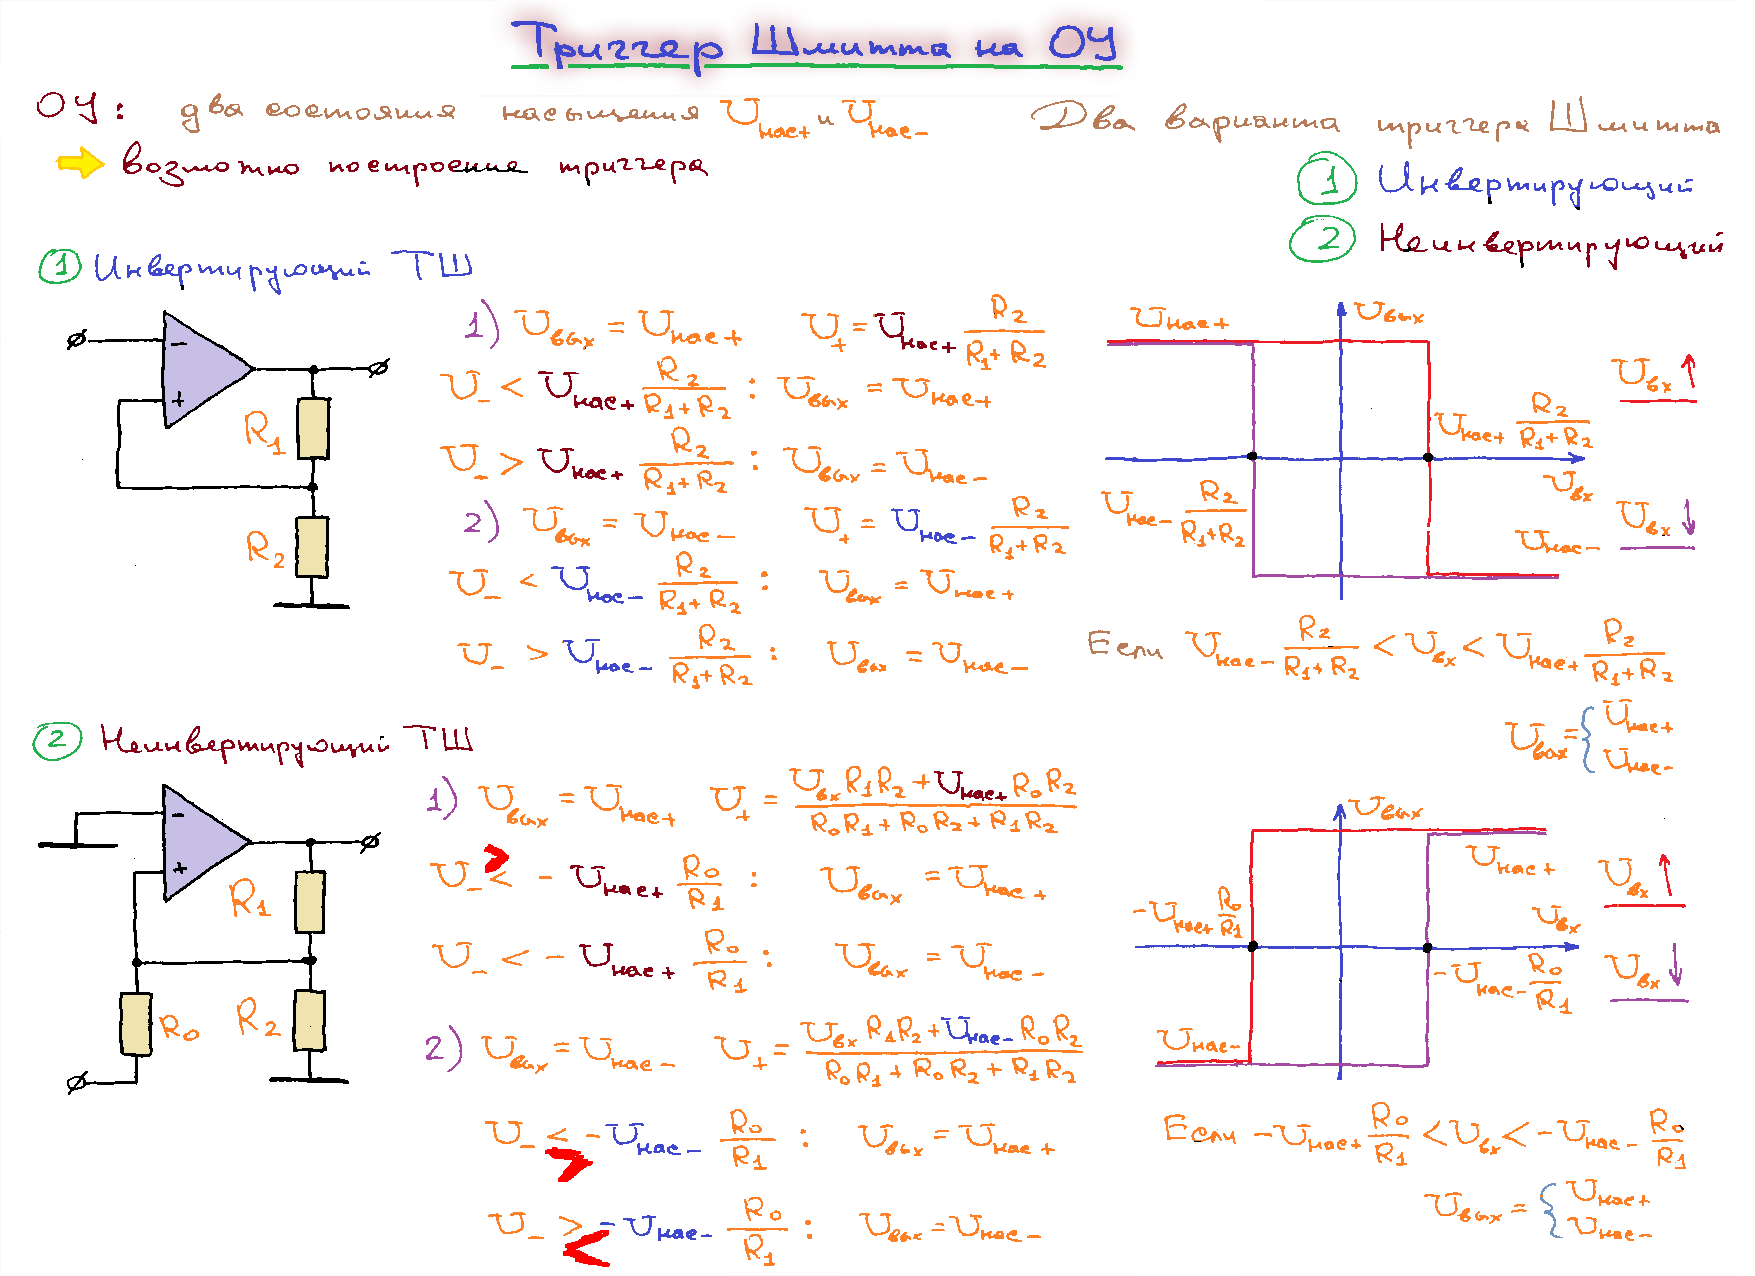 Триггер Шмитта на ОУ
ОУ: два состояния насыщения Uнас+ и Uнас-
возможно построение триггера
Два варианта триггера Шмитта
1 Инвертирующий
2 Неинвертирующий
1 Инвертирующий ТШ
- +
R1
R2
1) Uвых = Uнас+ U+ = Uнас+ R2/(R1+R2)
U- < Uнас+ R2/(R1+R2) : Uвых = Uнас+
U- > Uнас+ R2/(R1+R2) : Uвых = Uнас-
2) Uвых = Uнас- U+ = Uнас- R2/(R1+R2)
U- < Uнас- R2/(R1+R2) : Uвых = Uнас+
U- > Uнас- R2/(R1+R2) : Uвых = Uнас-
Uнас+ Uвых
Uвх ↑
Uнас+ R2/(R1+R2)
Uвх
Uнас- R2/(R1+R2)
Uвх ↓
Uнас-
Если Uнас- R2/(R1+R2) < Uвх < Uнас+ R2/(R1+R2)
Uвых = { Uнас+
Uнас-
2 Неинвертирующий ТШ
- +
R1
R0 R2
1) Uвых = Uнас+ U+ = (Uвх R1R2 + Uнас+ R0R2)/(R0R1 + R0R2 + R1R2)
>
U- < - Uнас+ R0/R1 : Uвых = Uнас+
U- < - Uнас+ R0/R1 : Uвых = Uнас-
2) Uвых = Uнас- U+ = (Uвх R1R2 + Uнас- R0R2)/(R0R1 + R0R2 + R1R2)
U- < - Uнас- R0/R1 : Uвых = Uнас+
>
U- > - Uнас- R0/R1 : Uвых = Uнас-
<
Uвых
Uнас+
Uвх ↑
-Uнас+ R0/R1
Uвх
-Uнас- R0/R1
Uвх ↓
Uнас-
Если -Uнас+ R0/R1 < Uвх < -Uнас- R0/R1
Uвых = { Uнас+
Uнас-